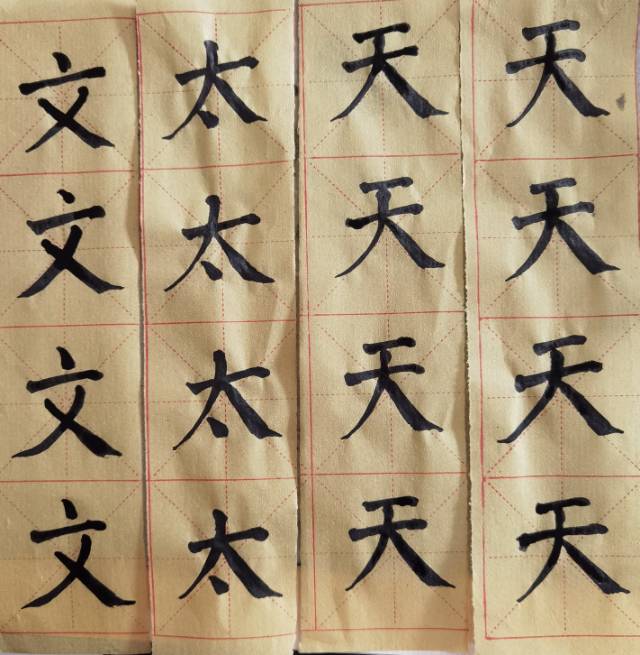 文太天天
文太天天
文太天天
文太天天